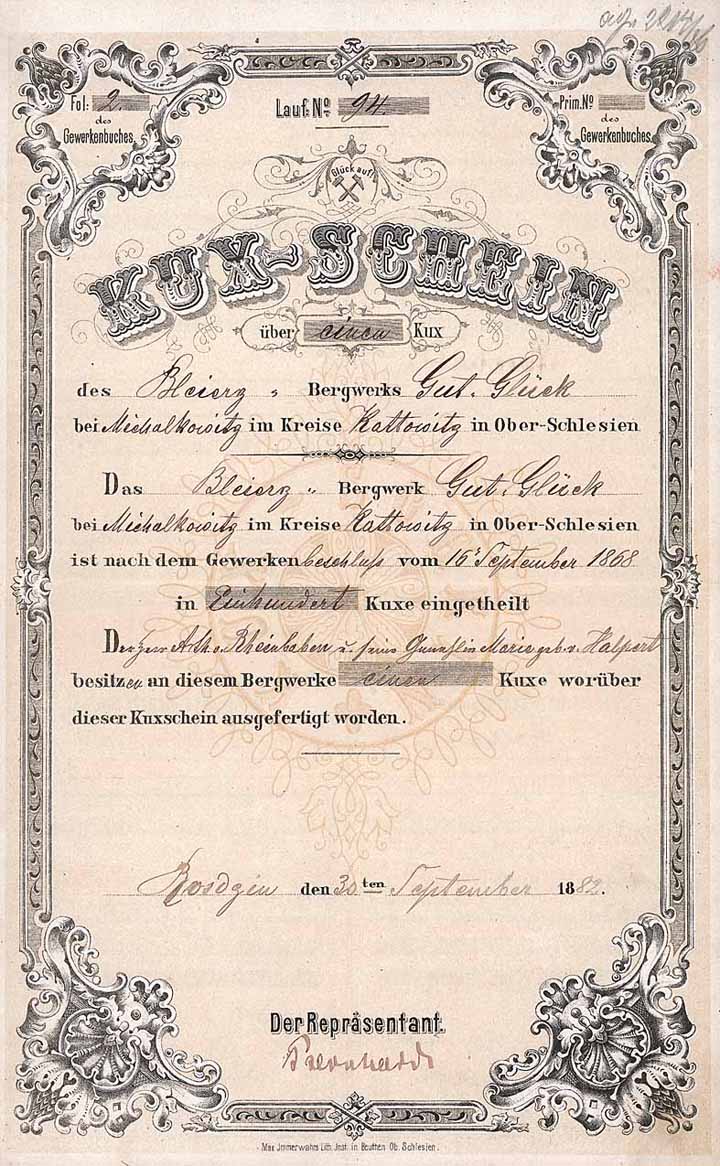 Fol: 2.
des
Gewerkenbuches.
Lauf. No 94.
Prim. No
des
Gewerkenbuches.
Glück auf!
KUX-SCHEIN
über einen Kux
des Bleierz „ Bergwerks Gut. Glück
bei Michalkowitz im Kreise Kattowitz in Ober-Schlesien
Das Bleierz „ Bergwerk Gut. Glück
bei Michalkowitz im Kreise Kattowitz in Ober-Schlesien
ist nach dem Gewerkenbeschluß vom 16t September 1868
in Einhundert Kuxe eingetheilt
Der Herr Arth. v. Rheinbaben u. seine Gemahlin Marie geb. v. Halpert
besitzen an diesem Bergwerke einen Kuxe worüber
dieser Kuxschein ausgefertigt worden.
Rosdzin den 30ten September 1882.
Der Repräsentant.
Bernhardi
Max Immerwahrs Lith. Inst. in Beuthen Ob. Schlesien.